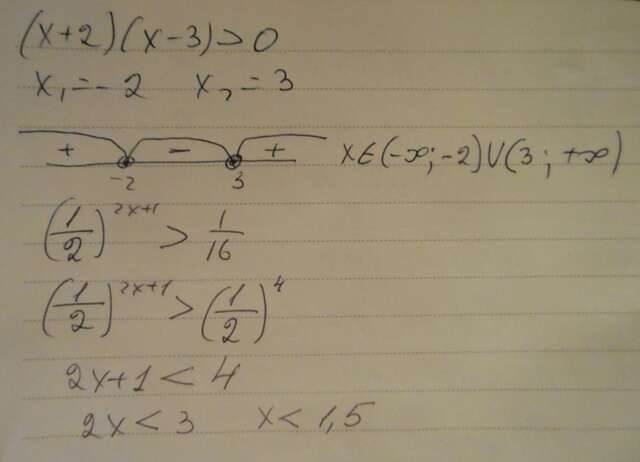 (x+2)(x-3)>0
x₁=-2 x₂=3
+ - +
-2 3
x∈(-∞;-2)∪(3;+∞)
(1/2)^(2x+1) > 1/16
(1/2)^(2x+1) > (1/2)^4
2x+1 < 4
2x < 3 x < 1,5